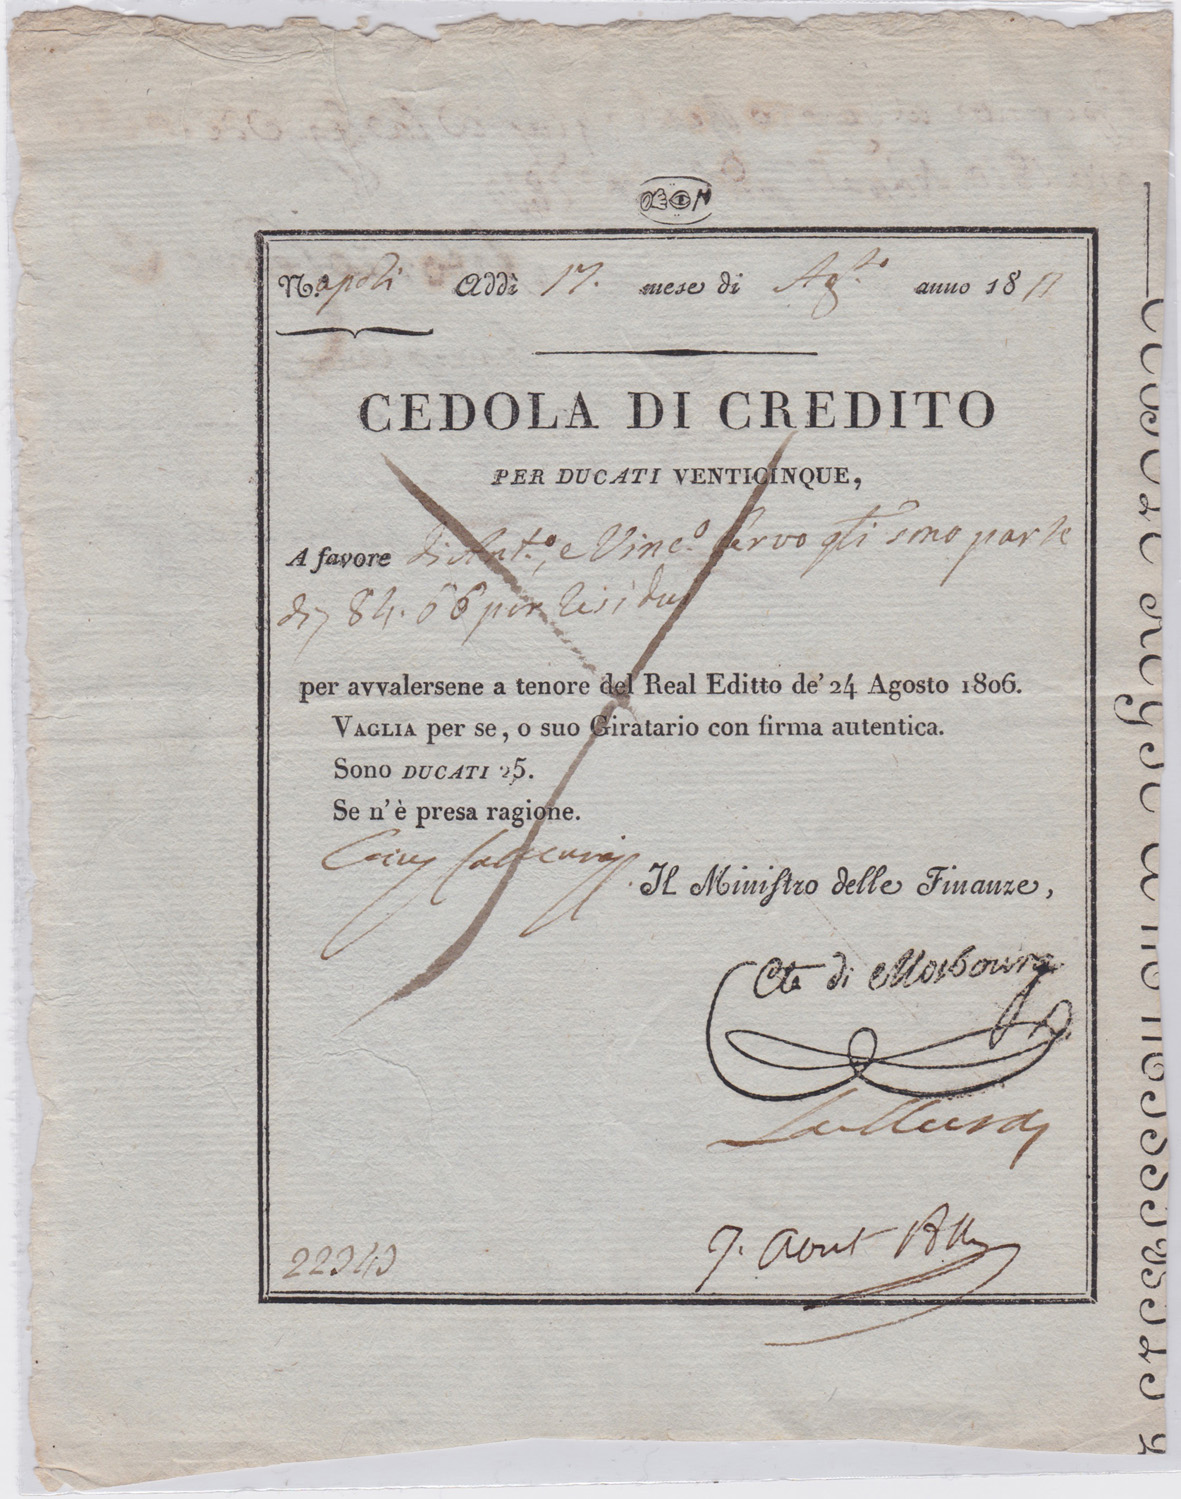 Napoli Addì 17. mese di Ag.to anno 1811
CEDOLA DI CREDITO
PER DUCATI VENTICINQUE,
A favore di Ant.o, e Vinc.o Servo gli sono parte
di 84.66 per residuo
per avvalersene a tenore del Real Editto de' 24 Agosto 1806.
VAGLIA per se, o suo Giratario con firma autentica.
Sono DUCATI 25.
Se n'è presa ragione.
Il Ministro delle Finanze,
Cte di Mosbourg
7. Aout
22343